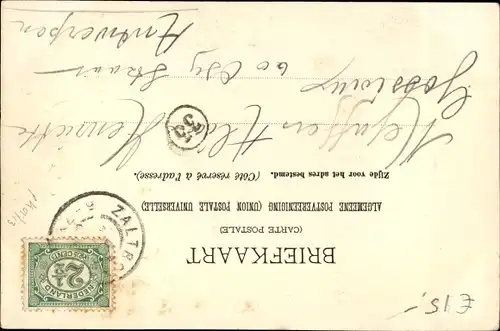 BRIEFKAART
(CARTE POSTALE)
ALGEMEENE POSTVEREENIGING (UNION POSTALE UNIVERSELLE)
Zijde voor het adres bestemd. (Côté réservé à l'adresse).
33
Henriëtte
60 Osy Straat
Antwerpen
ZALTBO
NEDERLAND
2½
CENT
£15,-